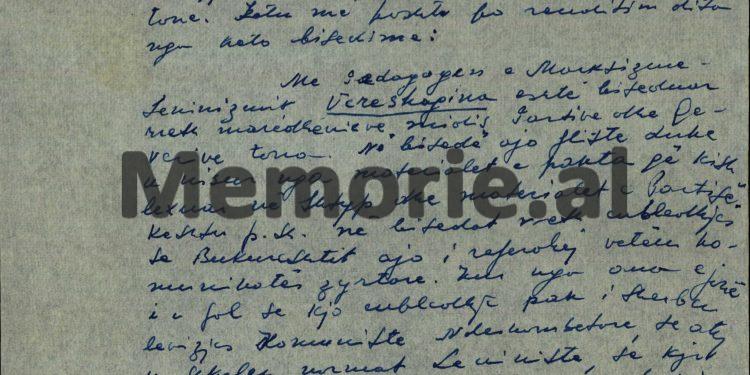 tone. Këtu më poshtë po renditim disa
nga këto bisedime:
Me Pedagogen e Marksizme-
Leninizmit Vera Shapina është biseduar
rreth marëdhenieve midis Partive dhe Qe-
verive tona. Në bisedë ajo fliste duke
u nisur nga materialet e pakta që kish
lexuar në shtyp dhe materialet e Partisë
Kështu p.sh. në bisedat rreth mbledhjes
së Bukureshtit ajo i referohej vetëm ko-
munikatës zyrtare. Kur nga ana e jonë
i u fol se kjo mbledhje pak i shërbeu
lëvizjes Komuniste Ndërkombëtare, se aty
normat Leniniste, se kjo
Memorie.al